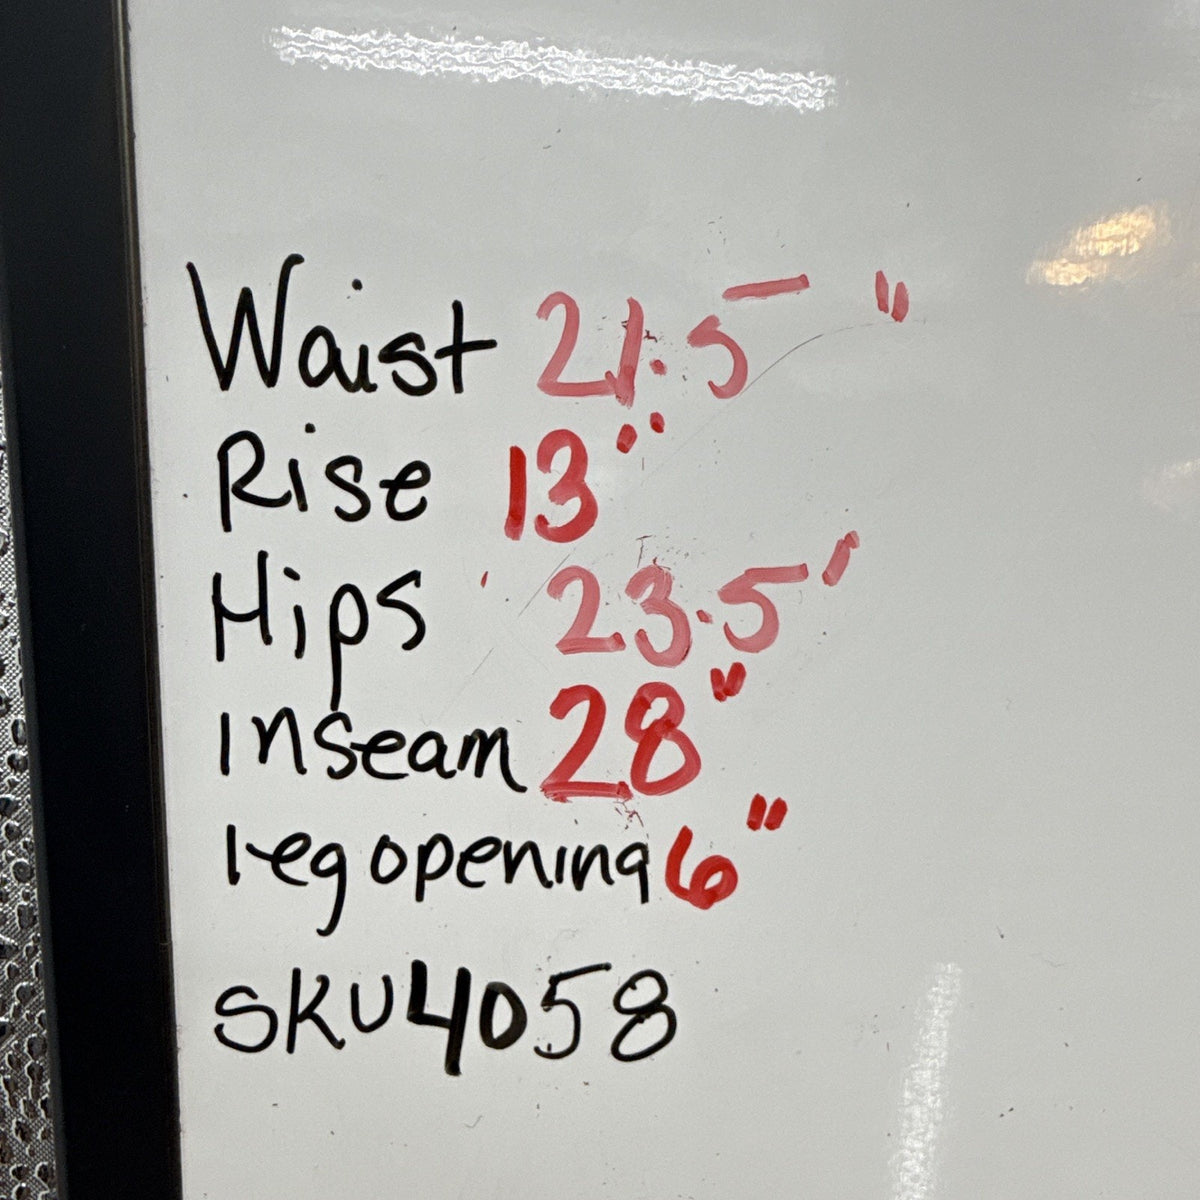 Waist 21.5"
Rise 13"
Hips 23.5'
Inseam 28"
leg opening 6"
SKU4058